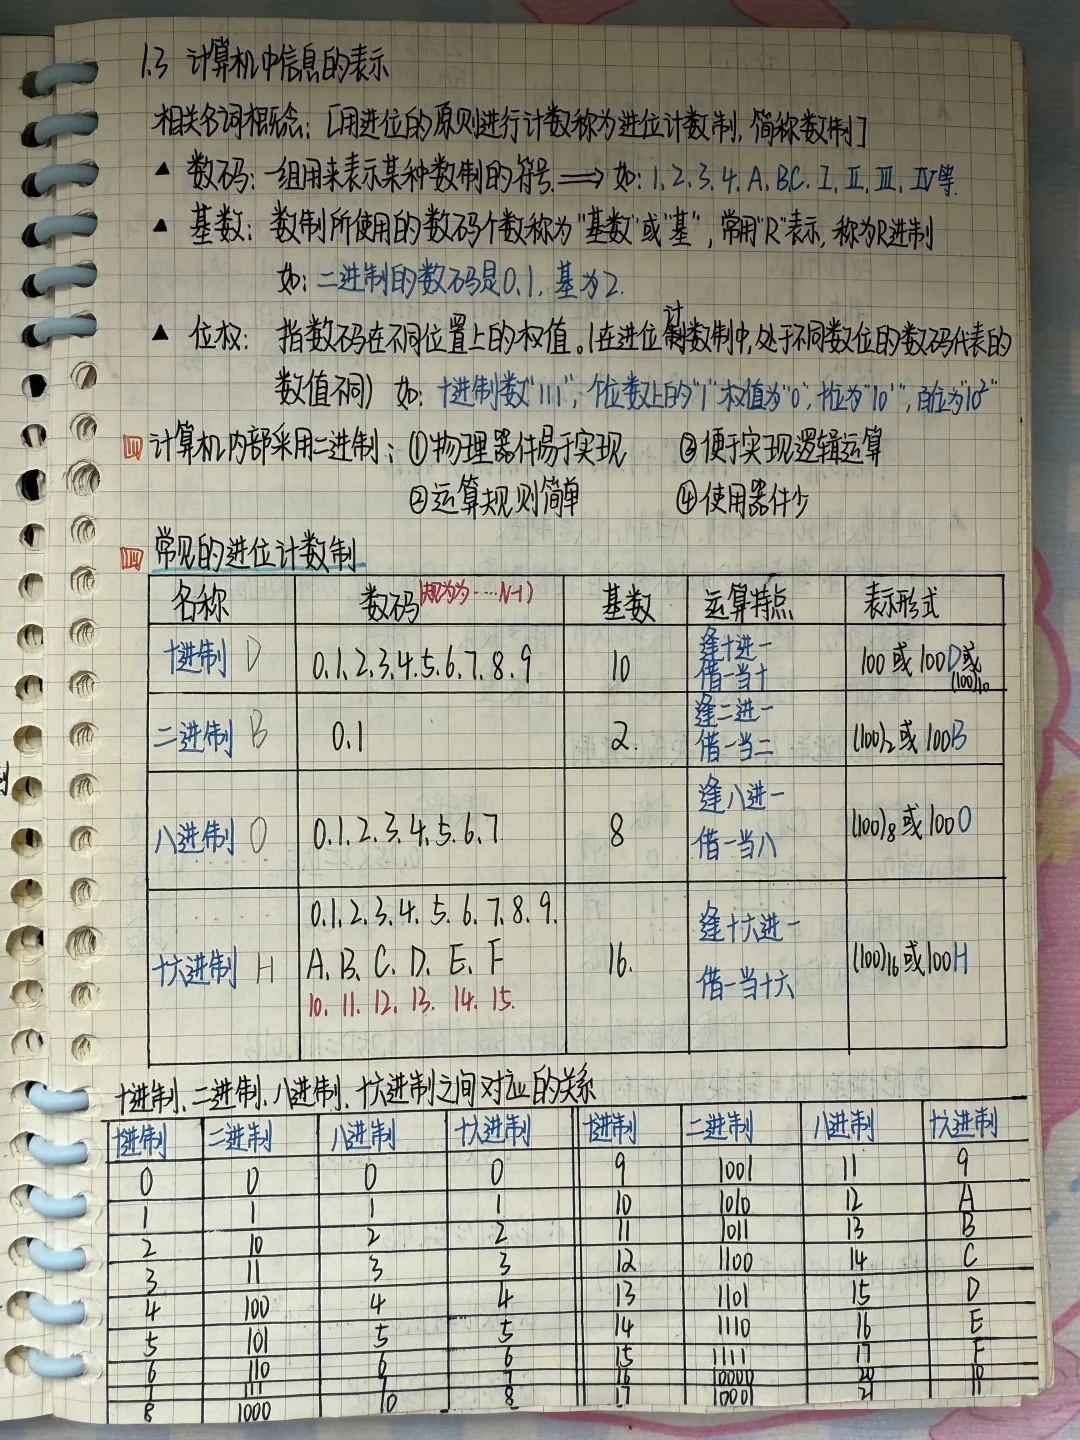 1.3 计算机中信息的表示
相关名词概念:[用进位的原则进行计数称为进位计数制,简称数制]
▲ 数码:一组用来表示某种数制的符号.⟹ 如:1.2.3.4.A.B.C.Ⅰ.Ⅱ.Ⅲ.Ⅳ等.
▲ 基数:数制所使用的数码个数称为"基数"或"基",常用"R"表示,称为R进制
如:二进制的数码是0.1.基为2.
计
▲ 位权:指数码在不同位置上的权值。(在进位制数制中,处于不同数位的数码代表的
数值不同) 如:十进制数"111",个位数上的"1"权值为"0",十位为"10¹",百位为"10²"
四 计算机内部采用二进制:①物理器件易于实现 ③便于实现逻辑运算
②运算规则简单 ④使用器件少
四 常见的进位计数制
名称 数码 N-1) 基数 运算特点 表示形式
十进制 D 0.1.2.3.4.5.6.7.8.9 10 逢十进一 借一当十 100 或 100D或(100)₁₀
二进制 B 0.1 2. 逢二进一 借一当二 (100)₂或100B
八进制 O 0.1.2.3.4.5.6.7 8 逢八进一 借一当八 (100)₈或100O
十六进制 H 0.1.2.3.4.5.6.7.8.9. 16. 逢十六进一 借一当十六 (100)₁₆或100H
A.B.C.D.E.F
10.11.12.13.14.15.
十进制.二进制.八进制.十六进制之间对应的关系
十进制 二进制 八进制 十六进制 十进制 二进制 八进制 十六进制
0 0 0 0 9 1001 11 9
1 1 1 1 10 1010 12 A
2 10 2 2 11 1011 13 B
3 11 3 3 12 1100 14 C
4 100 4 4 13 1101 15 D
5 101 5 5 14 1110 16 E
6 110 6 6 15 1111 17 F
111 7 16 10000 20
8 1000 10 8 17 10001 21 11